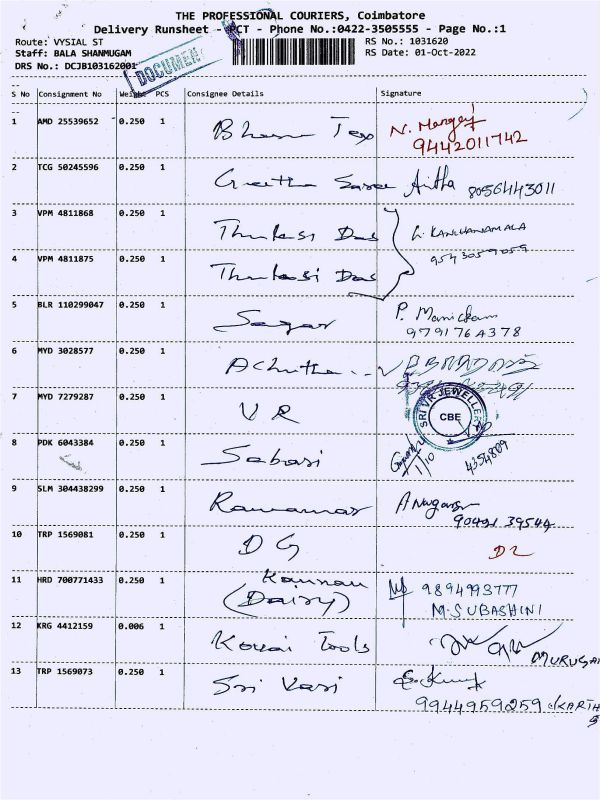 THE PROFESSIONAL COURIERS, Coimbatore
Delivery Runsheet - PCT - Phone No.:0422-3505555 - Page No.:1
Route: VYSIAL ST
RS No.: 1031620
Staff: BALA SHANMUGAM
RS Date: 01-Oct-2022
DRS No.: DCJB103162001
DOCUMEN
S No Consignment No Weight PCS Consignee Details Signature
1 AMD 25539652 0.250 1 Tex
9442011742
2 TCG 50245596 0.250 1 Geetha Saree Ajitha 8056443011
3 VPM 4811868 0.250 1 Thulasi Das
4 VPM 4811875 0.250 1 Thulasi Das
L. KANCHANAMALA
9543059059
5 BLR 110299047 0.250 1 Sagar P. Manickam
9791764378
6 MYD 3028577 0.250 1
7 MYD 7279287 0.250 1 V R
SRI VR JEWELLERY
CBE
8 PDK 6043384 0.250 1 Sabari
1/10
4354809
9 SLM 304438299 0.250 1
90491 39544
10 TRP 1569081 0.250 1 D G
11 HRD 700771433 0.250 1 Kannan
(Dairy)
9894993777
M.SUBASHINI
12 KRG 4412159 0.006 1 Kovai Tools
MURUGAN
13 TRP 1569073 0.250 1 Sri Vari
9944959259